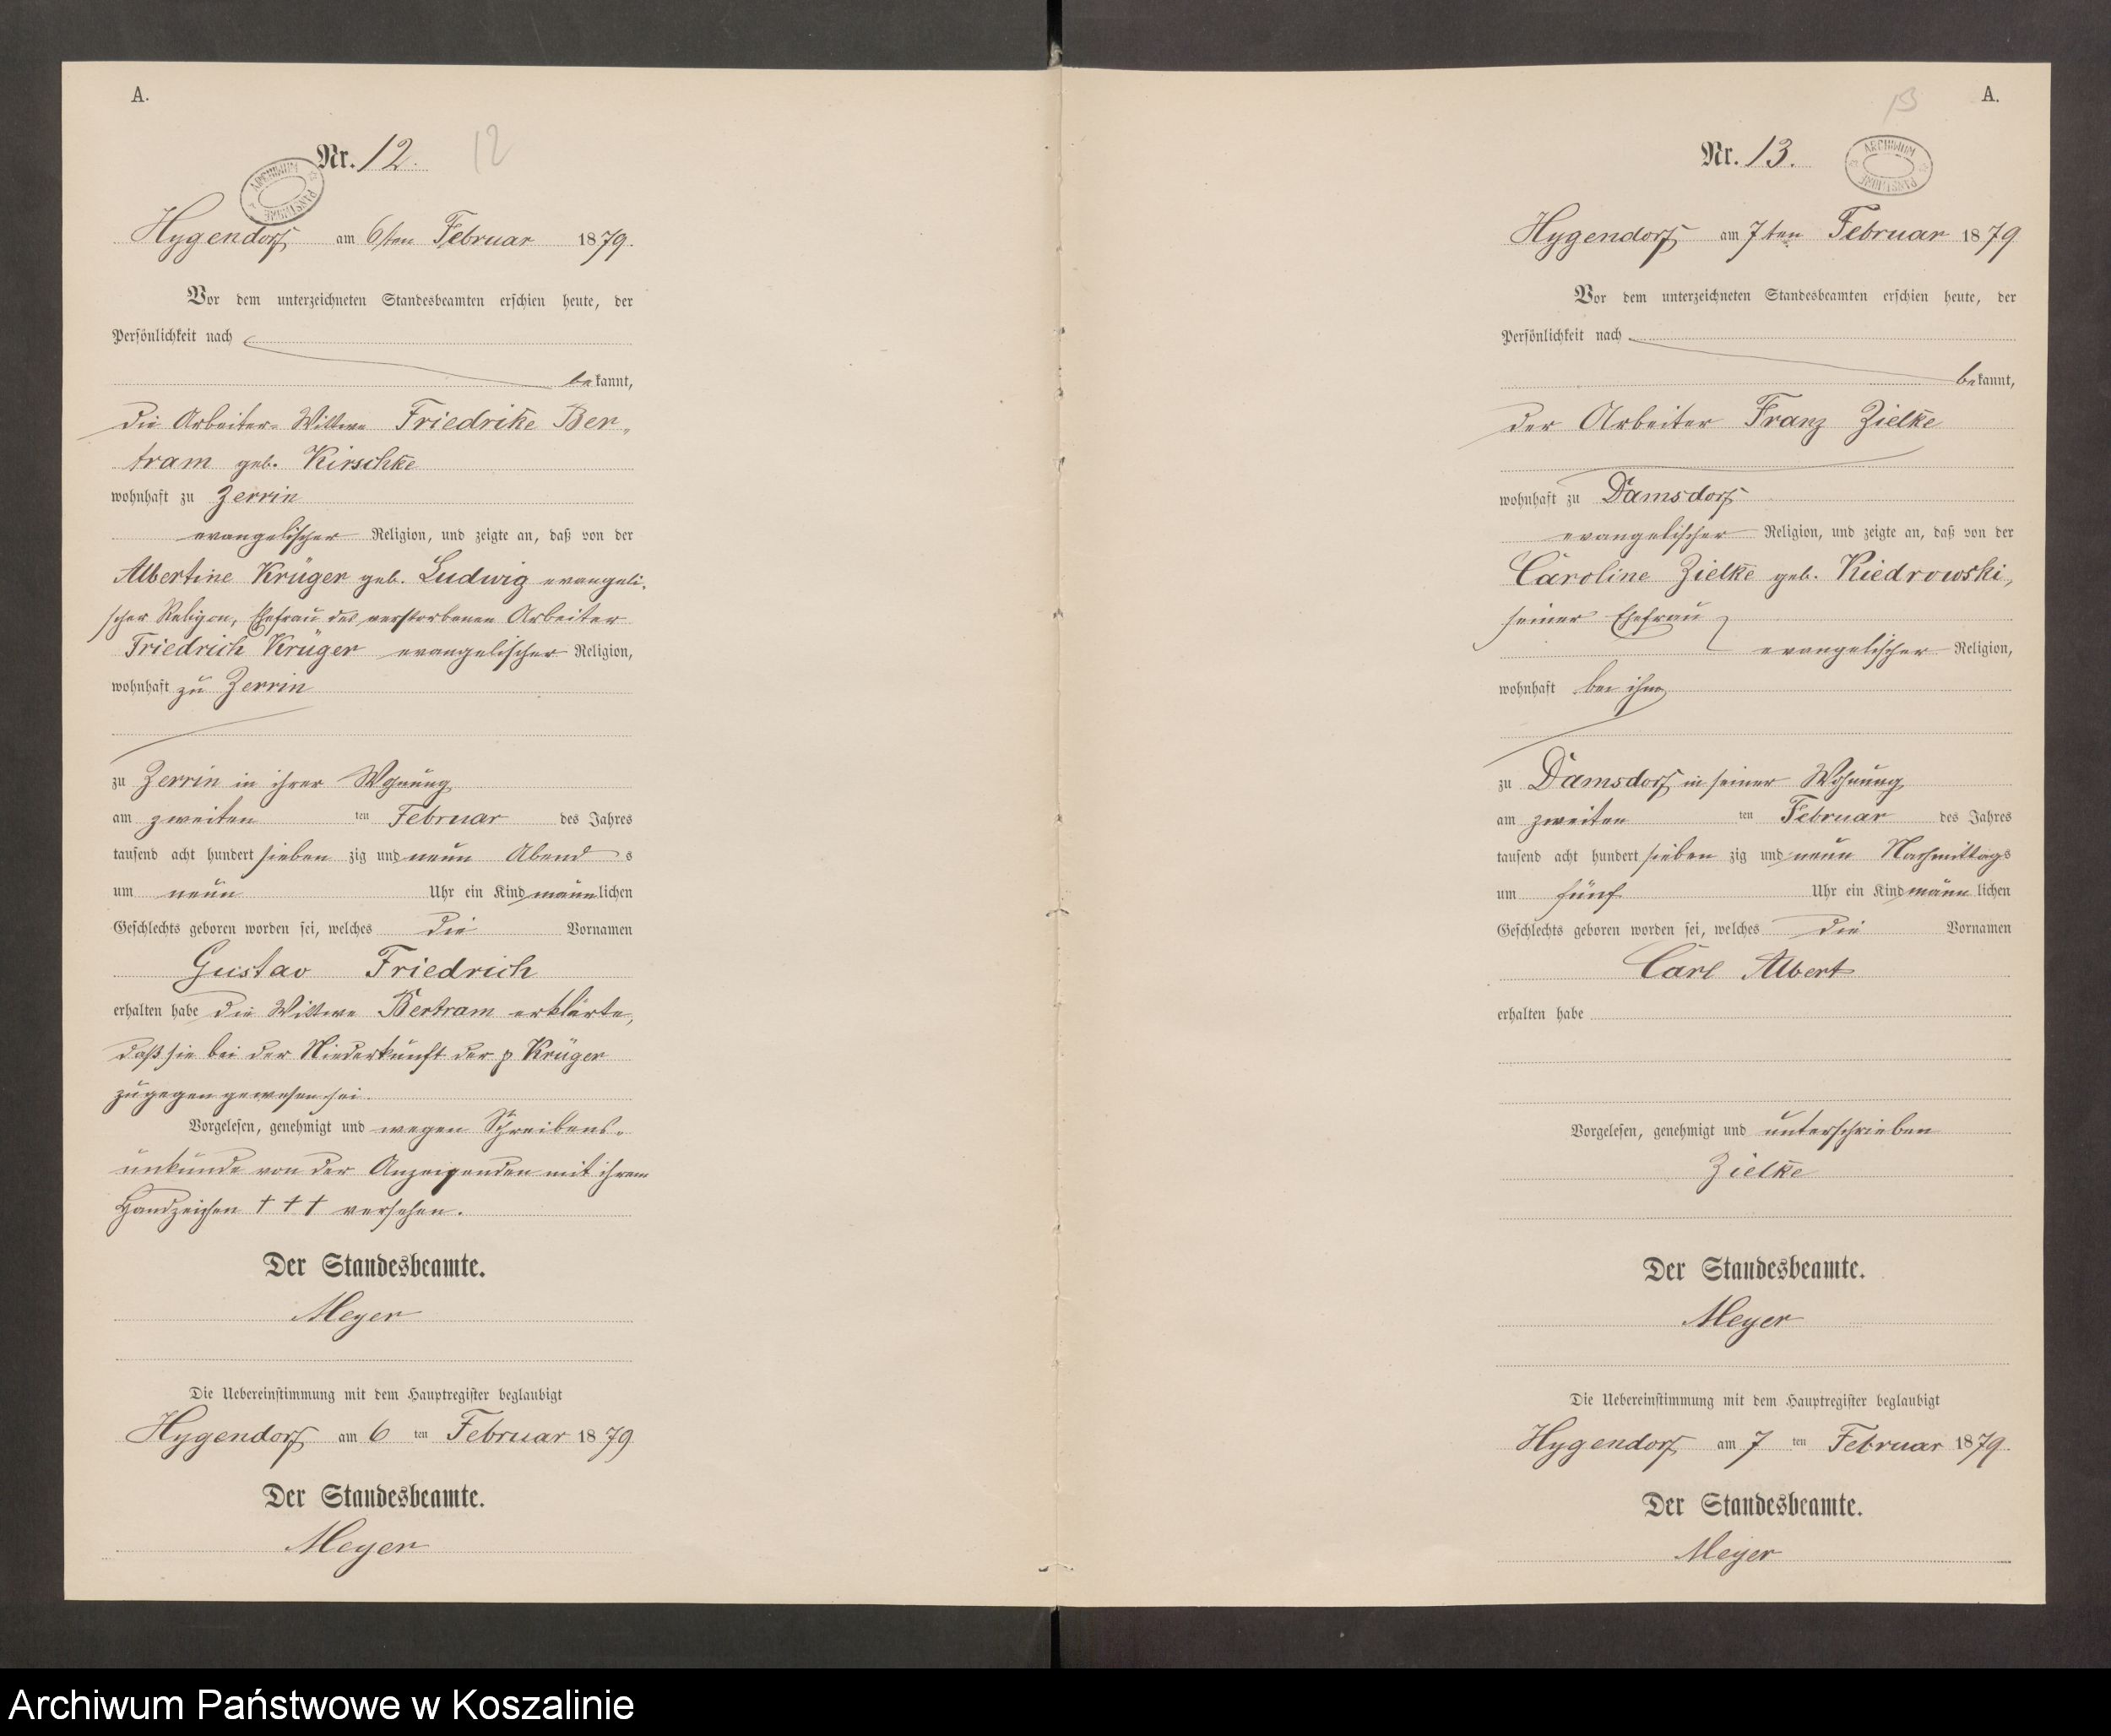 A.
Nr. 12.
12
ARCHIWUM PAŃSTWOWE
Hygendorf am 6ten Februar 1879.
Vor dem unterzeichneten Standesbeamten erschien heute, der
Persönlichkeit nach
bekannt,
die Arbeiter-Wittwe Friedrike Ber-
tram geb. Kirschke
wohnhaft zu Zerrin
evangelischer Religion, und zeigte an, daß von der
Albertine Krüger geb. Ludwig evangeli-
scher Religion, Ehefrau des verstorbenen Arbeiter
Friedrich Krüger evangelischer Religion,
wohnhaft zu Zerrin
zu Zerrin in ihrer Wohnung
am zweiten ten Februar des Jahres
tausend acht hundert sieben zig und neun Abend s
um neun Uhr ein Kind männlichen
Geschlechts geboren worden sei, welches die Vornamen
Gustav Friedrich
erhalten habe die Wittwe Bertram erklärte,
daß sie bei der Niederkunft der p Krüger
zugegen gewesen sei.
Vorgelesen, genehmigt und wegen Schreibens-
unkunde von der Anzeigenden mit ihrem
Handzeichen + + + versehen.
Der Standesbeamte.
Meyer
Die Uebereinstimmung mit dem Hauptregister beglaubigt
Hygendorf am 6 ten Februar 1879
Der Standesbeamte.
Meyer
A.
13
Nr. 13.
ARCHIWUM PAŃSTWOWE
Hygendorf am 7ten Februar 1879
Vor dem unterzeichneten Standesbeamten erschien heute, der
Persönlichkeit nach
bekannt,
der Arbeiter Franz Zielke
wohnhaft zu Damsdorf
evangelischer Religion, und zeigte an, daß von der
Caroline Zielke geb. Kiedrowski,
seiner Ehefrau
evangelischer Religion,
wohnhaft bei ihm
zu Damsdorf in seiner Wohnung
am zweiten ten Februar des Jahres
tausend acht hundert sieben zig und neun Nachmittags
um fünf Uhr ein Kind männ lichen
Geschlechts geboren worden sei, welches die Vornamen
Carl Albert
erhalten habe
Vorgelesen, genehmigt und unterschrieben
Zielke
Der Standesbeamte.
Meyer
Die Uebereinstimmung mit dem Hauptregister beglaubigt
Hygendorf am 7 ten Februar 1879.
Der Standesbeamte.
Meyer
Archiwum Państwowe w Koszalinie